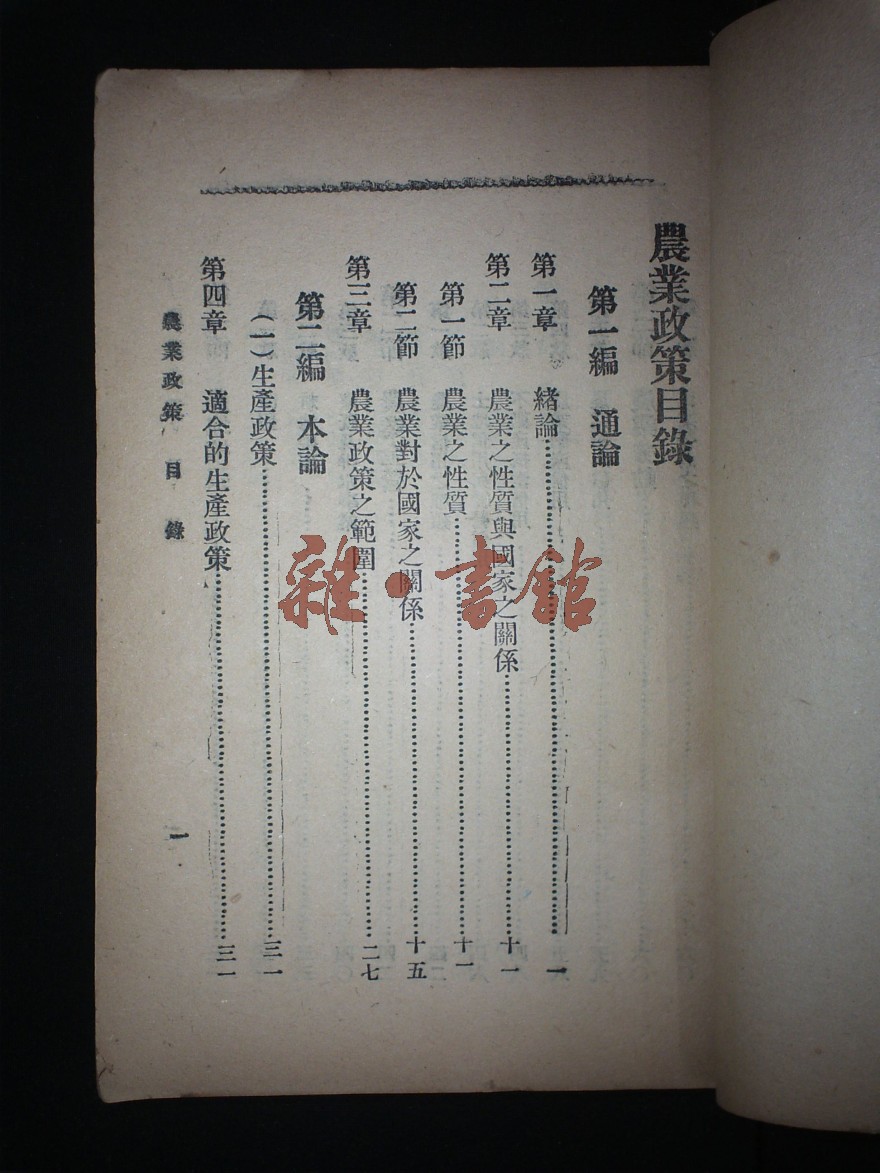 農業政策目錄
第一編 通論
第一章 緒論……一
第二章 農業之性質與國家之關係……十一
第一節 農業之性質……十一
第二節 農業對於國家之關係……十五
第三章 農業政策之範圍……二七
第二編 本論
(一)生產政策……三一
第四章 適合的生產政策……三一
農業政策 目錄
一
雜·書館